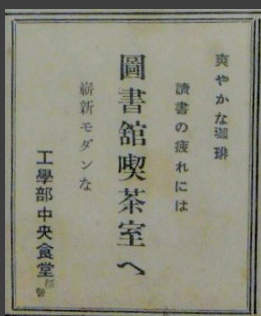 爽やかな珈琲
讀書の疲れには
圖書館喫茶室へ
嶄新モダンな
工學部中央食堂